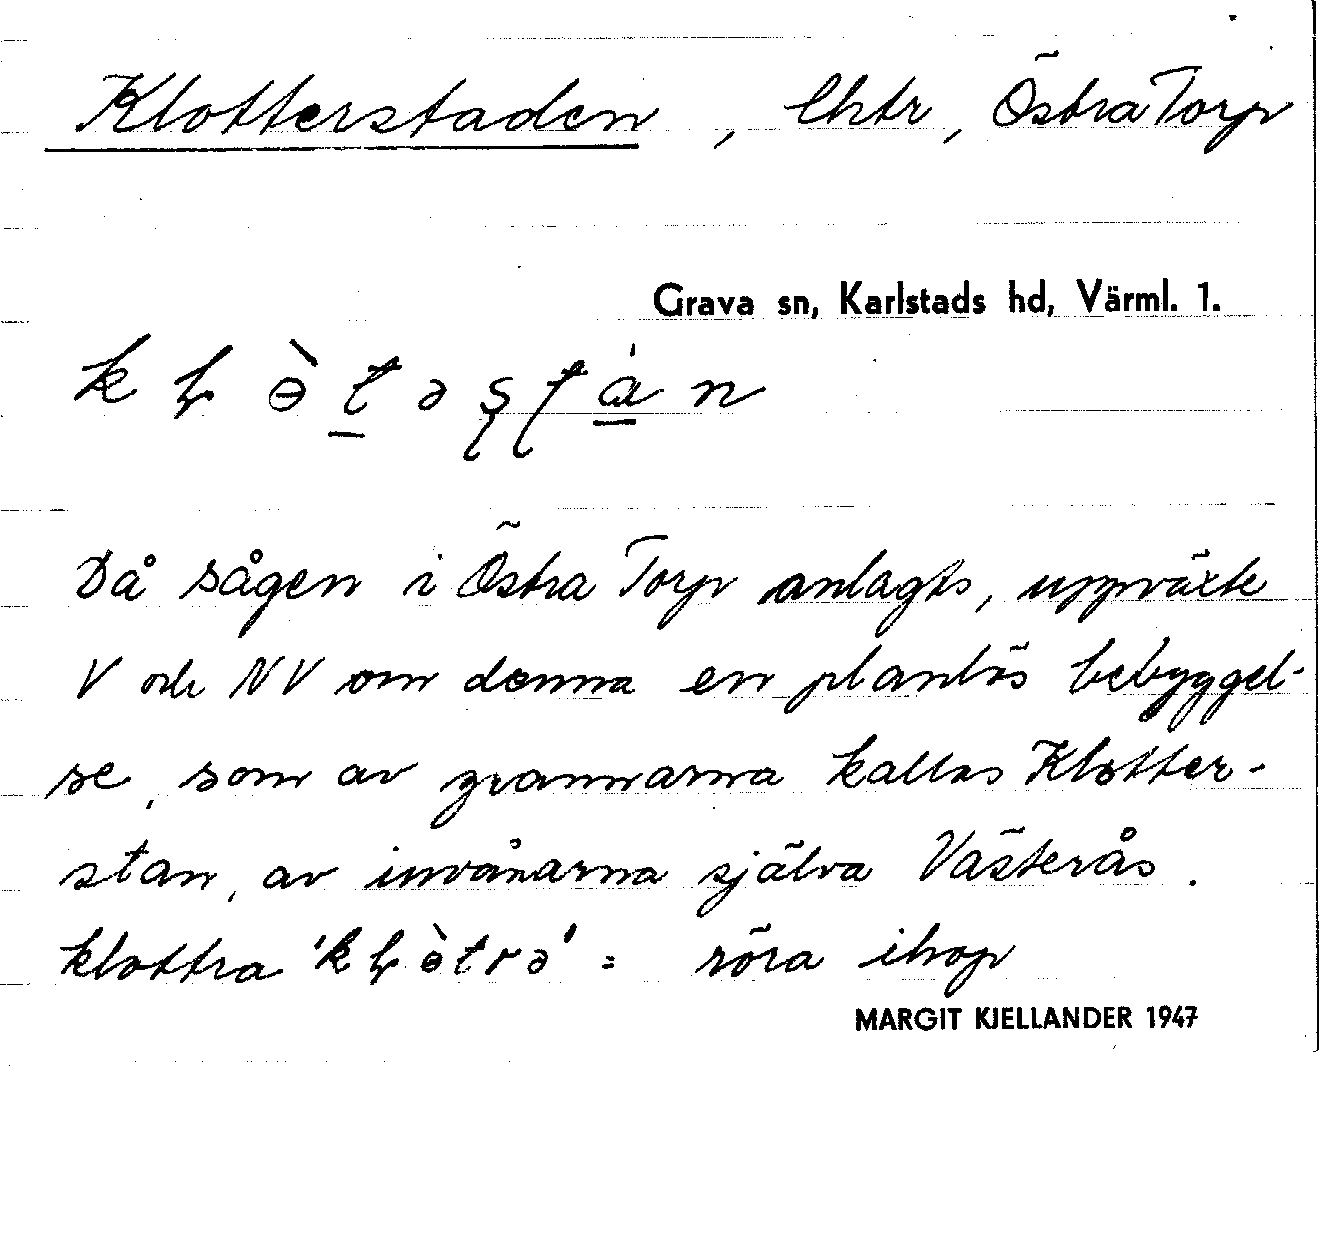 Klotterstaden, lhtr, Östra Torp
Grava sn, Karlstads hd, Värml. 1.
Då sågen i Östra Torp anlagts, uppväxte
V och NV om denna en planlös bebyggel-
se, som av grannarna kallas Klotter-
stan, av invånarna själva Västerås.
klottra = röra ihop
MARGIT KJELLANDER 1947